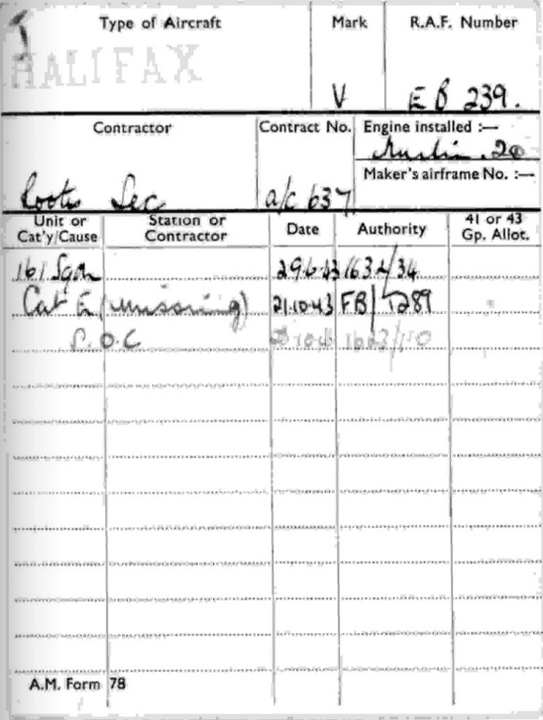 Type of Aircraft Mark R.A.F. Number
HALIFAX V EB 239.
Contractor Contract No. Engine installed :—
Merlin. 20
Maker's airframe No. :—
Rootes Sec a/c 637
Unit or Cat'y/Cause Station or Contractor Date Authority 41 or 43 Gp. Allot.
161 Sqdn 29.6.43 163A/34
Cat E (missing) 21.10.43 FB/ 289
S.O.C
A.M. Form 78